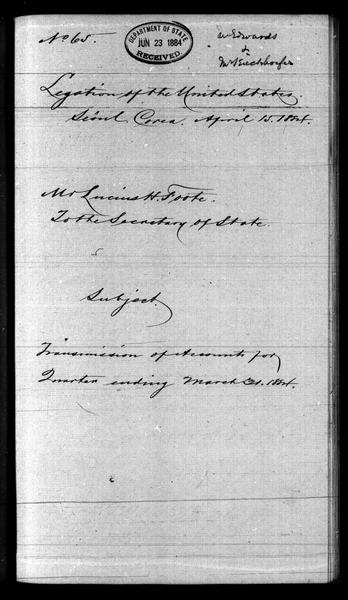 No 65.
DEPARTMENT OF STATE
JUN 23 1884
RECEIVED
Edwards
&
Legation of the United States.
Séoul, Corea. April 15. 1884.
Mr Lucius H. Foote.
To the Secretary of State.
Subject.
Transmission of Accounts for
Quarter ending March 31. 1884.